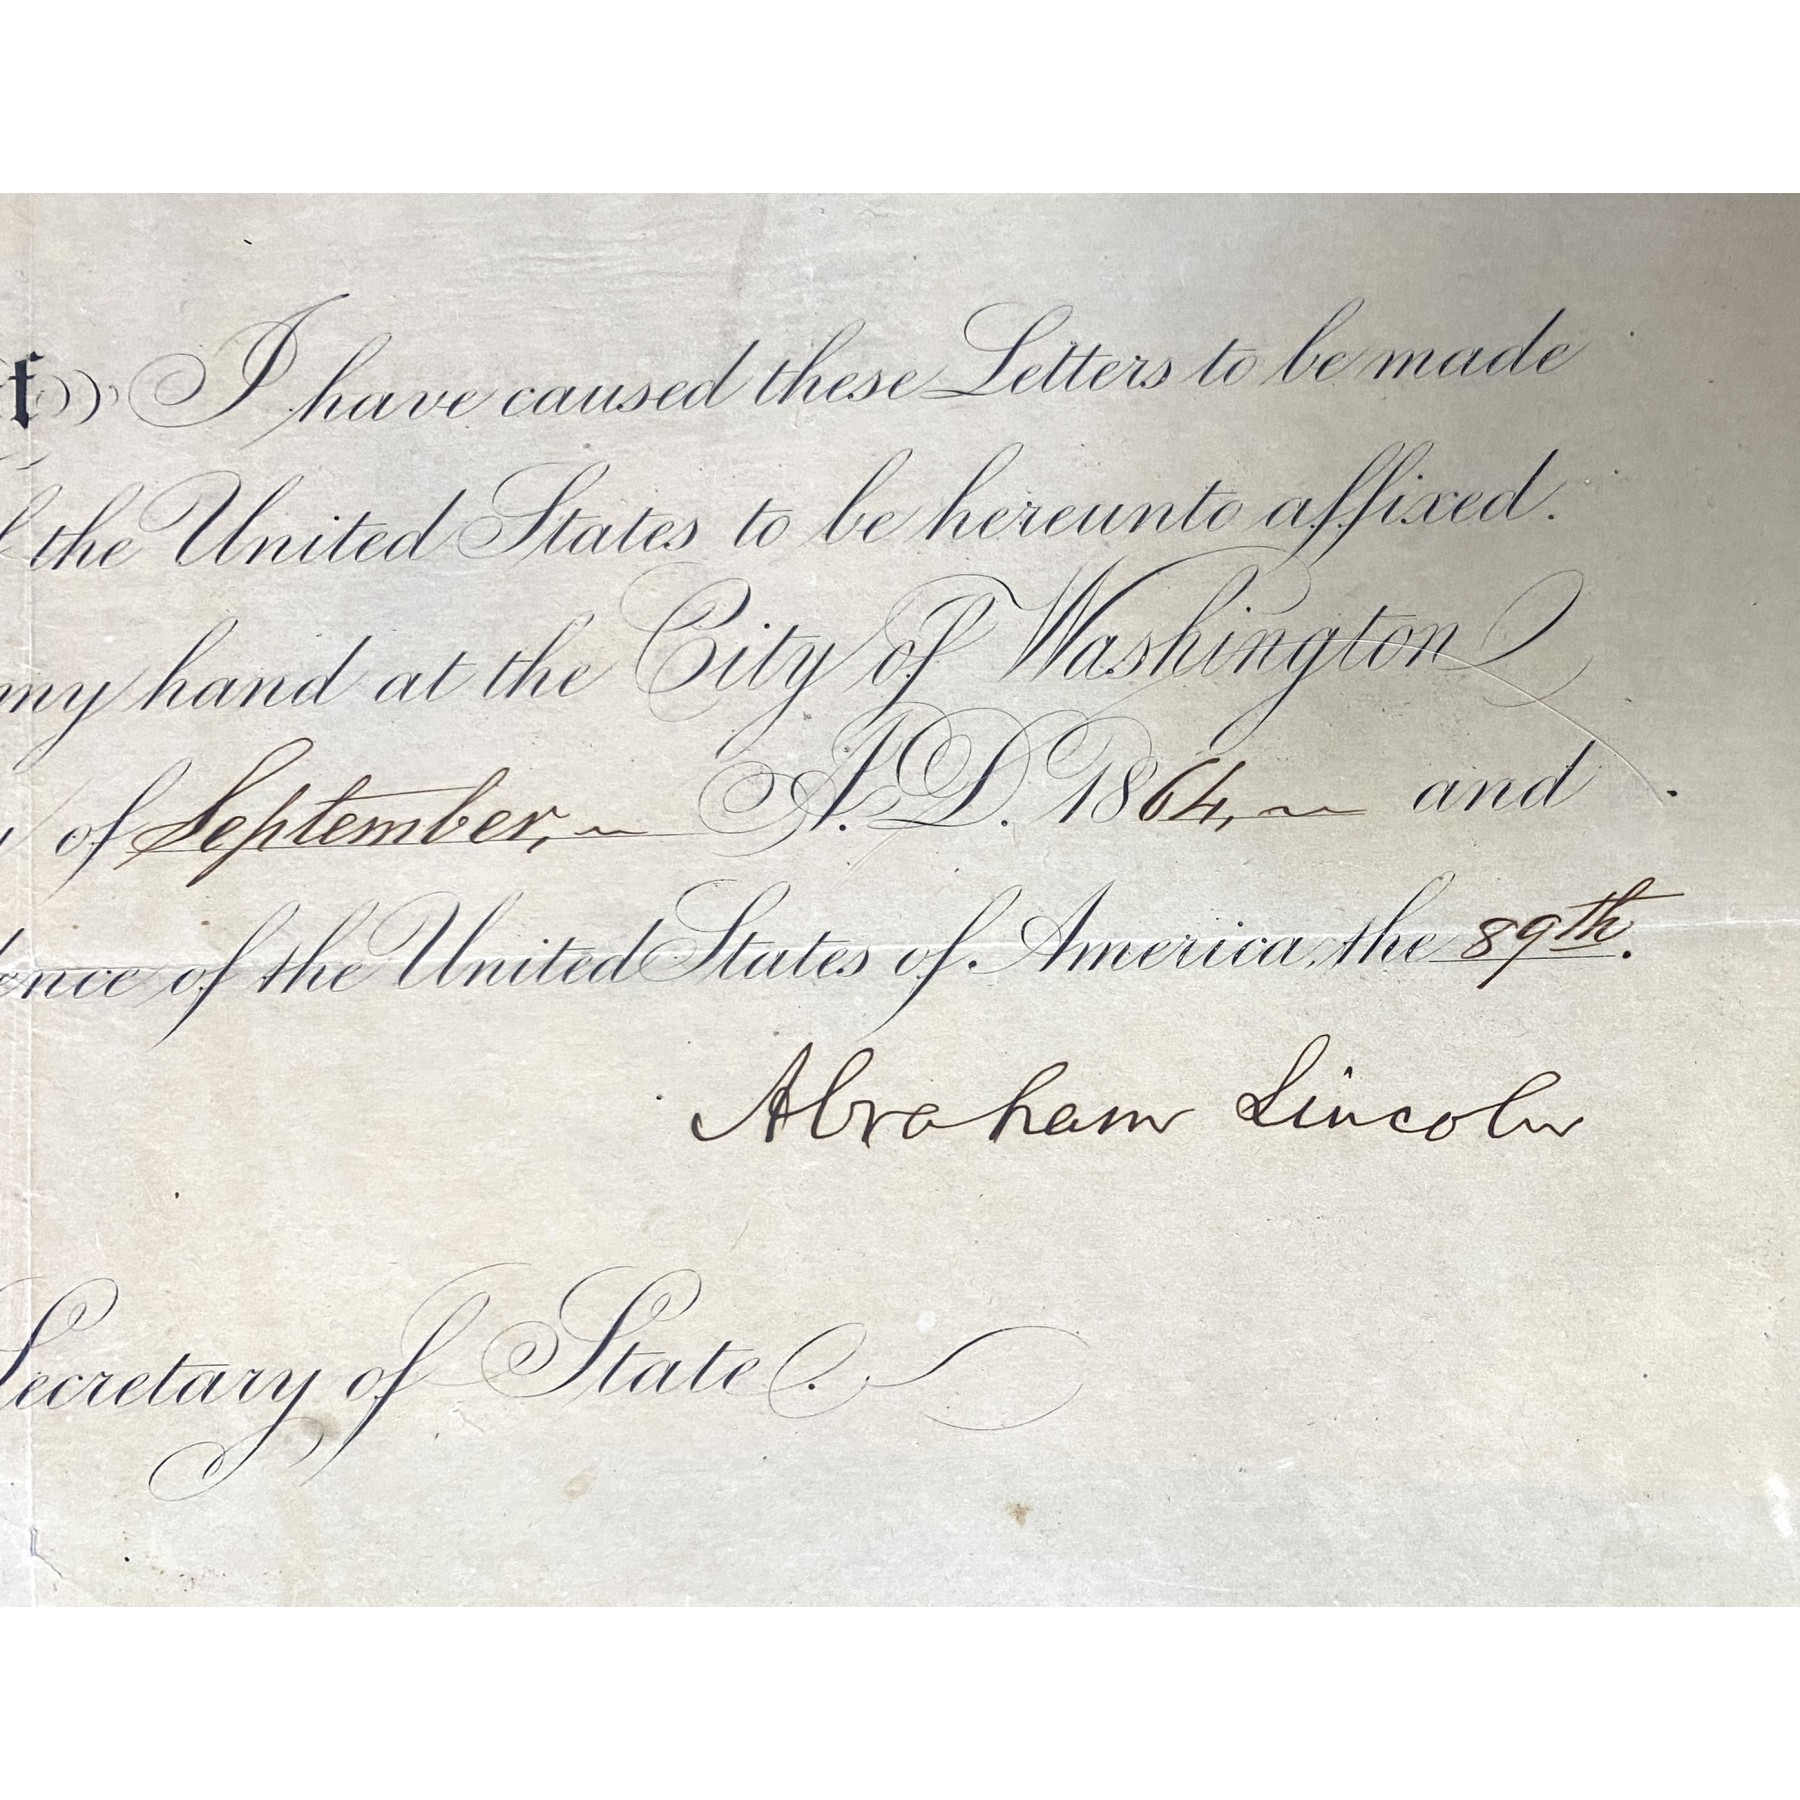 f I have caused these Letters to be made
the United States to be hereunto affixed.
my hand at the City of Washington
of September, A.D. 1864, and
ence of the United States of America, the 89th.
Abraham Lincoln
Secretary of State.